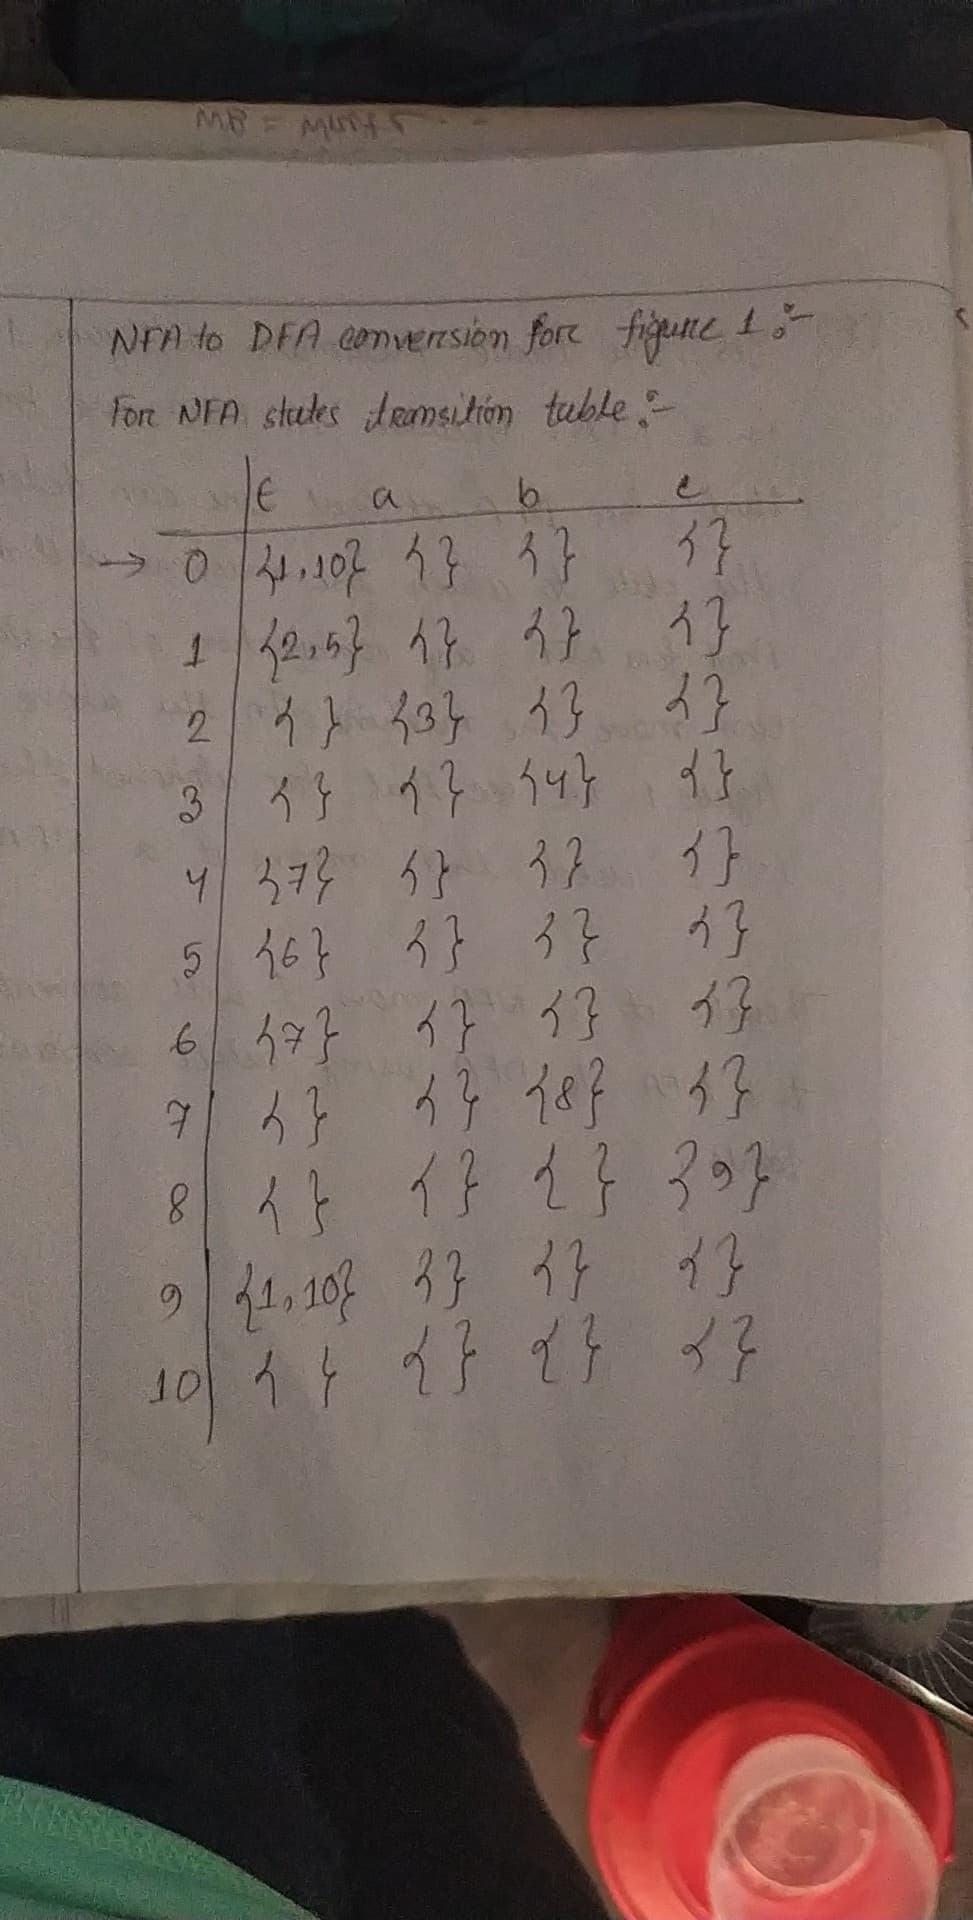 NFA to DFA conversion for figure 1 :-
For NFA states transition table :-
ϵ a b c
→ 0 {1,10} {} {} {}
1 {2,5} {} {} {}
2 { } {3} {} {}
3 {} {} {4} {}
4 {7} {} {} {}
5 {6} {} {} {}
6 {7} {} {} {}
7 {} {} {8} {}
8 {} {} {} {9}
9 {1,10} {} {} {}
10 { } {} {} {}